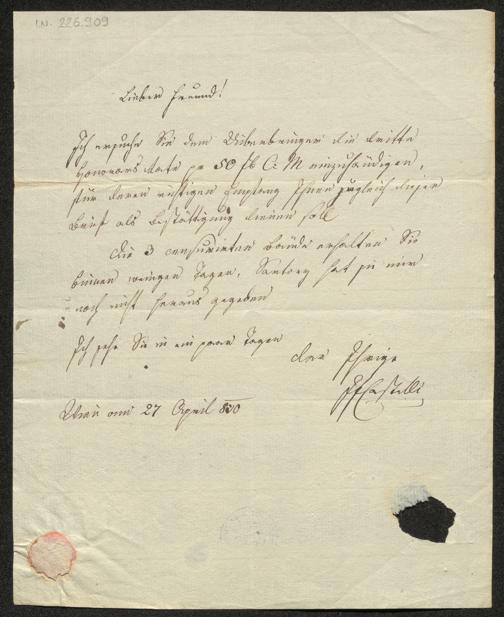 I.N. 226.909
Lieber Freund!
Ich ersuche Sie dem Überbringer die dritte
Honorars Rate pr 50 fl C. M einzuhändigen,
für deren richtigen Empfang Ihnen zugleich dieser
Brief als Bestättigung dienen soll
Die 3 censurirten Bände erhalten Sie
binnen wenigen Tagen, Sartory hat sie mir
noch nicht heraus gegeben
Ich sehe Sie in ein paar Tagen
der Ihrige
Castelli
Wien am 27 April 830